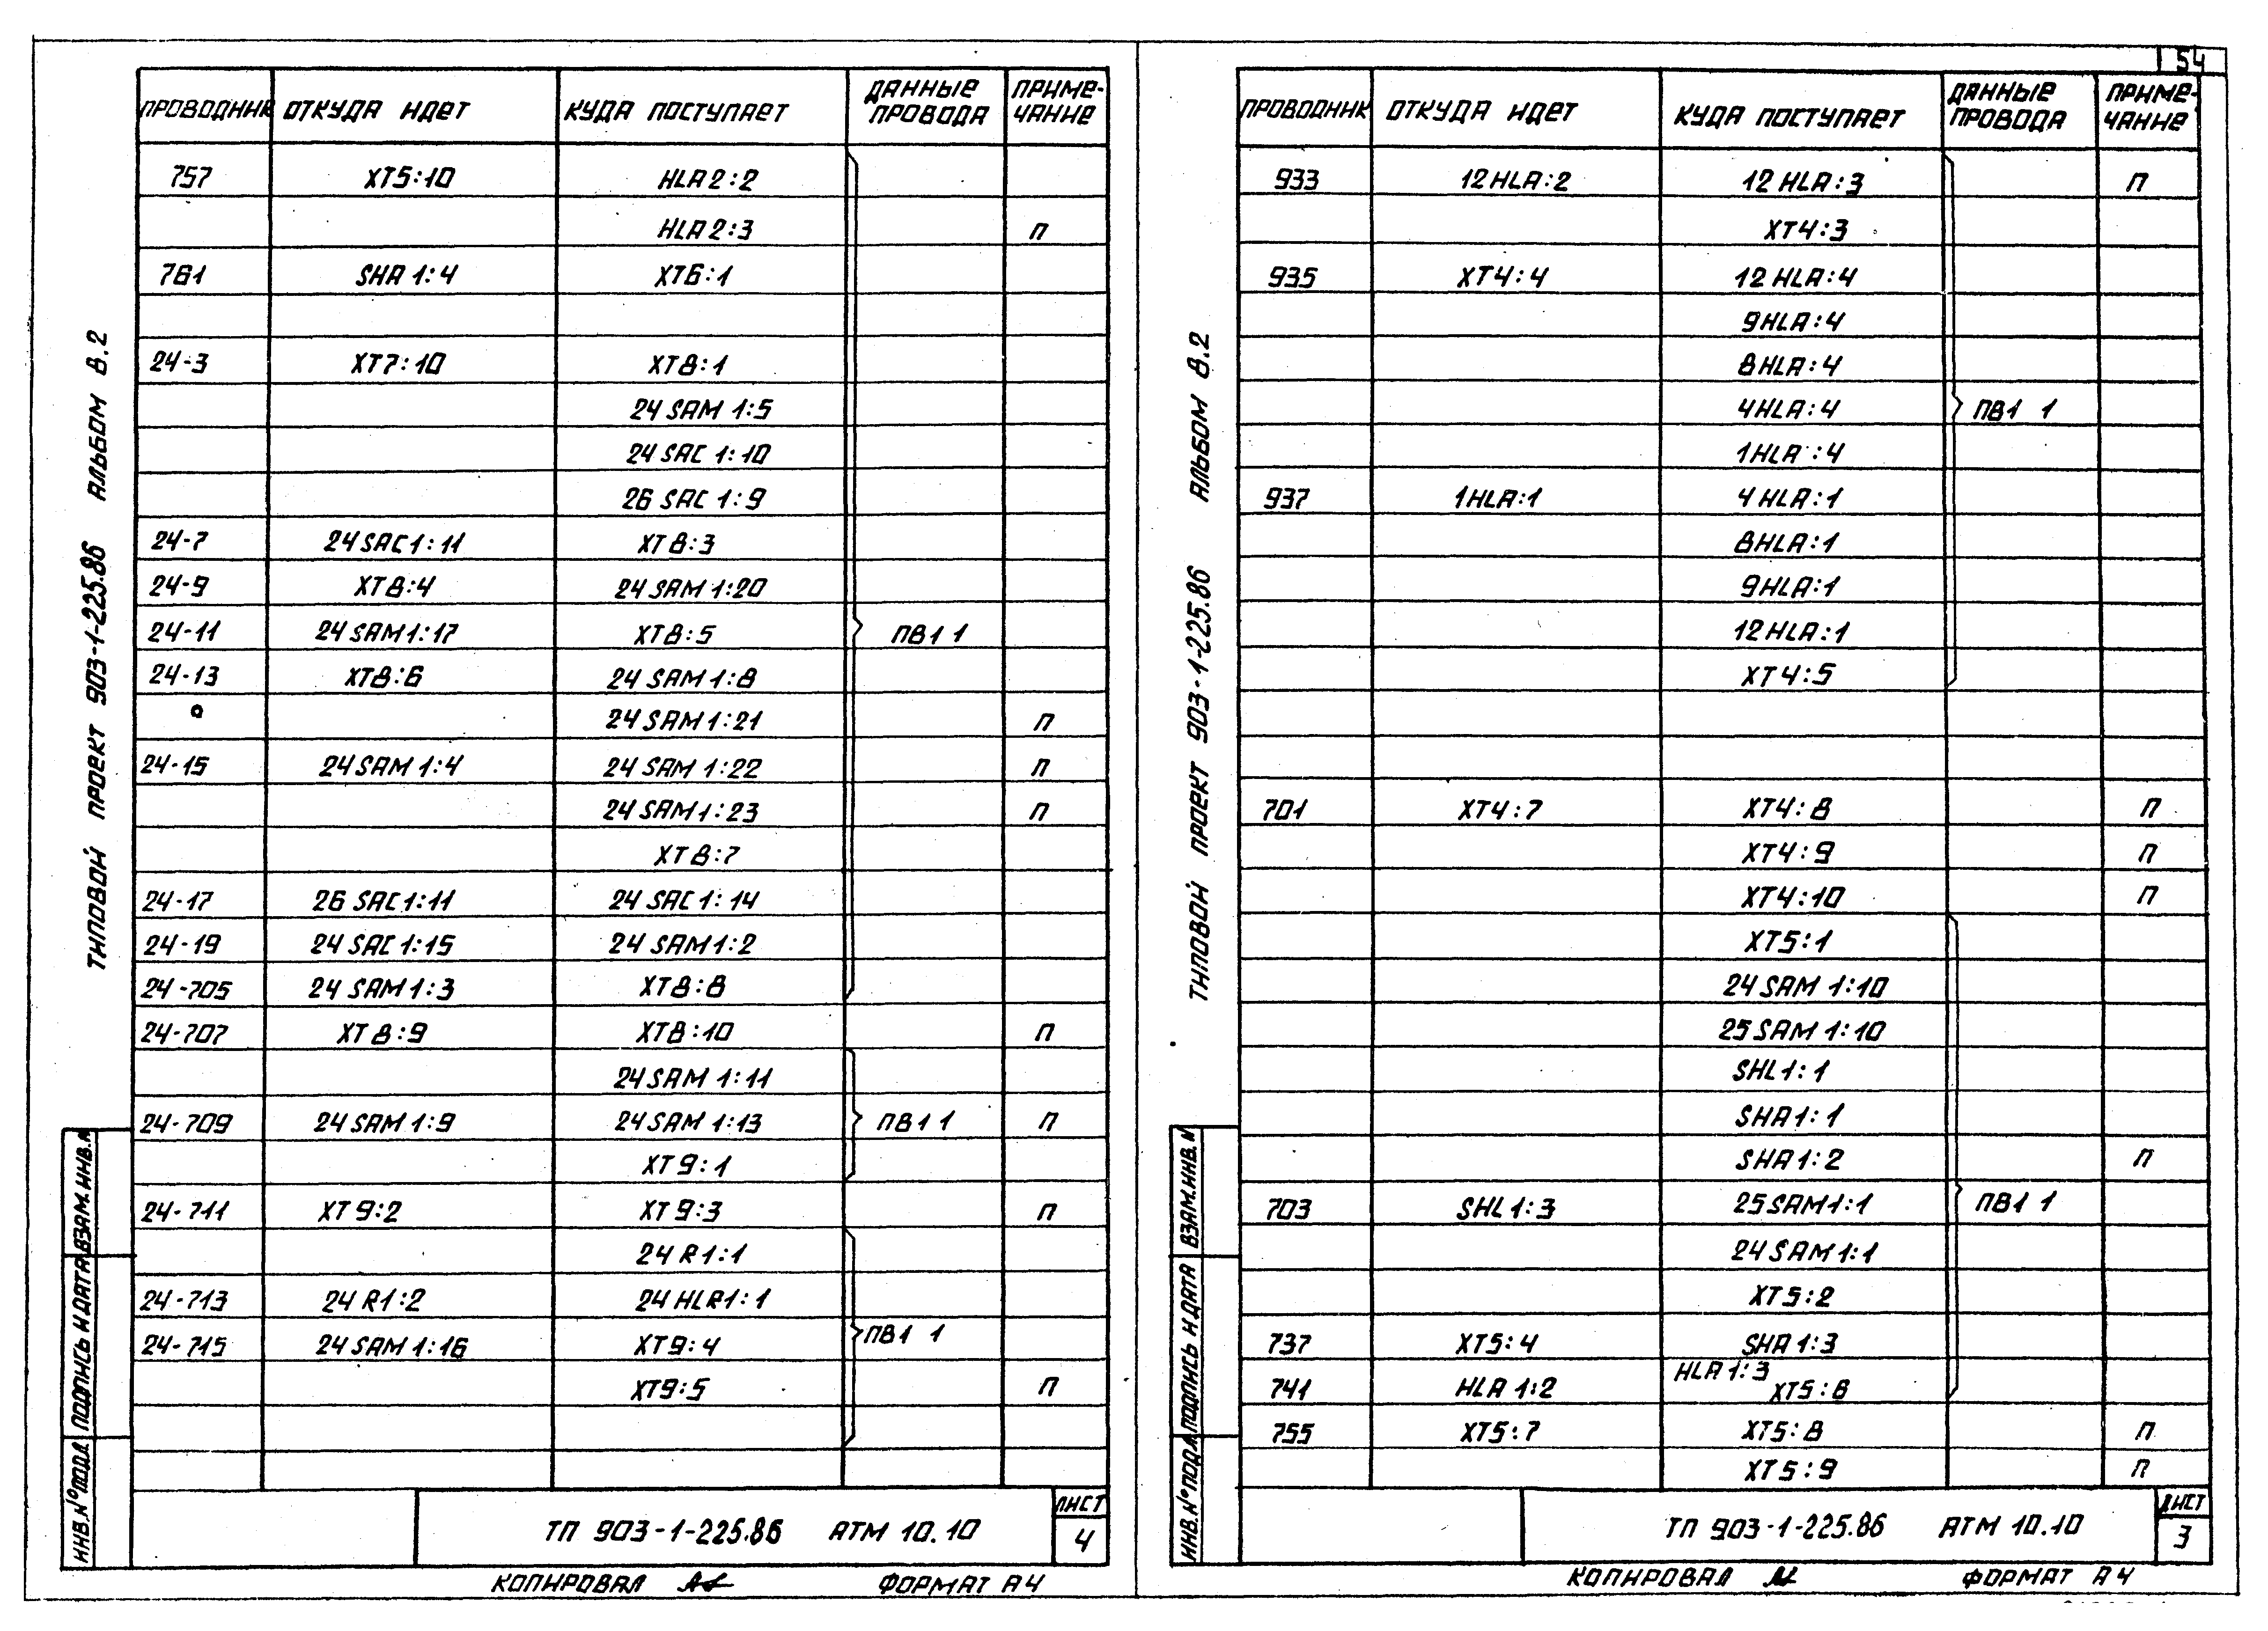 54
ТИПОВОЙ ПРОЕКТ 903-1-225.86 АЛЬБОМ 8.2
ПРОВОДНИК ОТКУДА ИДЕТ КУДА ПОСТУПАЕТ ДАННЫЕ ПРОВОДА ПРИМЕ-ЧАНИЕ
757 ХТ5:10 HLA2:2
HLA2:3 П
761 SHA1:4 ХТ6:1
24-3 ХТ7:10 ХТ8:1
24SAM1:5
24SAC1:10
26SAC1:9
24-7 24SAC1:11 ХТ8:3
24-9 ХТ8:4 24SAM1:20
24-11 24SAM1:17 ХТ8:5 ПВ1 1
24-13 ХТ8:6 24SAM1:8
24SAM1:21 П
24-15 24SAM1:4 24SAM1:22 П
24SAM1:23 П
ХТ8:7
24-17 26SAC1:11 24SAC1:14
24-19 24SAC1:15 24SAM1:2
24-705 24SAM1:3 ХТ8:8
24-707 ХТ8:9 ХТ8:10 П
24SAM1:11
24-709 24SAM1:9 24SAM1:13 ПВ1 1 П
ХТ9:1
24-711 ХТ9:2 ХТ9:3 П
24R1:1
24-713 24R1:2 24HLR1:1
24-715 24SAM1:16 ХТ9:4 ПВ1 1
ХТ9:5 П
ИНВ.N°ПОДЛ ПОДПИСЬ И ДАТА ВЗАМ.ИНВ.N
ТП 903-1-225.86 АТМ 10.10
ЛИСТ
4
КОПИРОВАЛ ФОРМАТ А4
ТИПОВОЙ ПРОЕКТ 903-1-225.86 АЛЬБОМ 8.2
ПРОВОДНИК ОТКУДА ИДЕТ КУДА ПОСТУПАЕТ ДАННЫЕ ПРОВОДА ПРИМЕ-ЧАНИЕ
933 12HLA:2 12HLA:3 П
ХТ4:3
935 ХТ4:4 12HLA:4
9HLA:4
8HLA:4
4HLA:4 ПВ1 1
1HLA:4
937 1HLA:1 4HLA:1
8HLA:1
9HLA:1
12HLA:1
ХТ4:5
701 ХТ4:7 ХТ4:8 П
ХТ4:9 П
ХТ4:10 П
ХТ5:1
24SAM1:10
25SAM1:10
SHL1:1
SHA1:1
SHA1:2 П
703 SHL1:3 25SAM1:1 ПВ1 1
24SAM1:1
ХТ5:2
737 ХТ5:4 SHA1:3
HLA1:3
741 HLA1:2 ХТ5:6
755 ХТ5:7 ХТ5:8 П
ХТ5:9 П
ИНВ.N°ПОДЛ ПОДПИСЬ И ДАТА ВЗАМ.ИНВ.N
ТП 903-1-225.86 АТМ 10.10
ЛИСТ
3
КОПИРОВАЛ ФОРМАТ А4